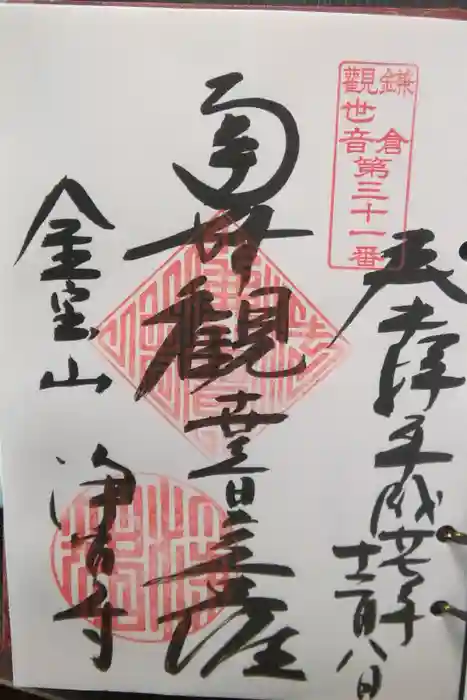 鎌倉
觀世音
第三十一番
奉拝 平成廿七年
十二月八日
南無觀世音菩薩
金宝山 浄智寺